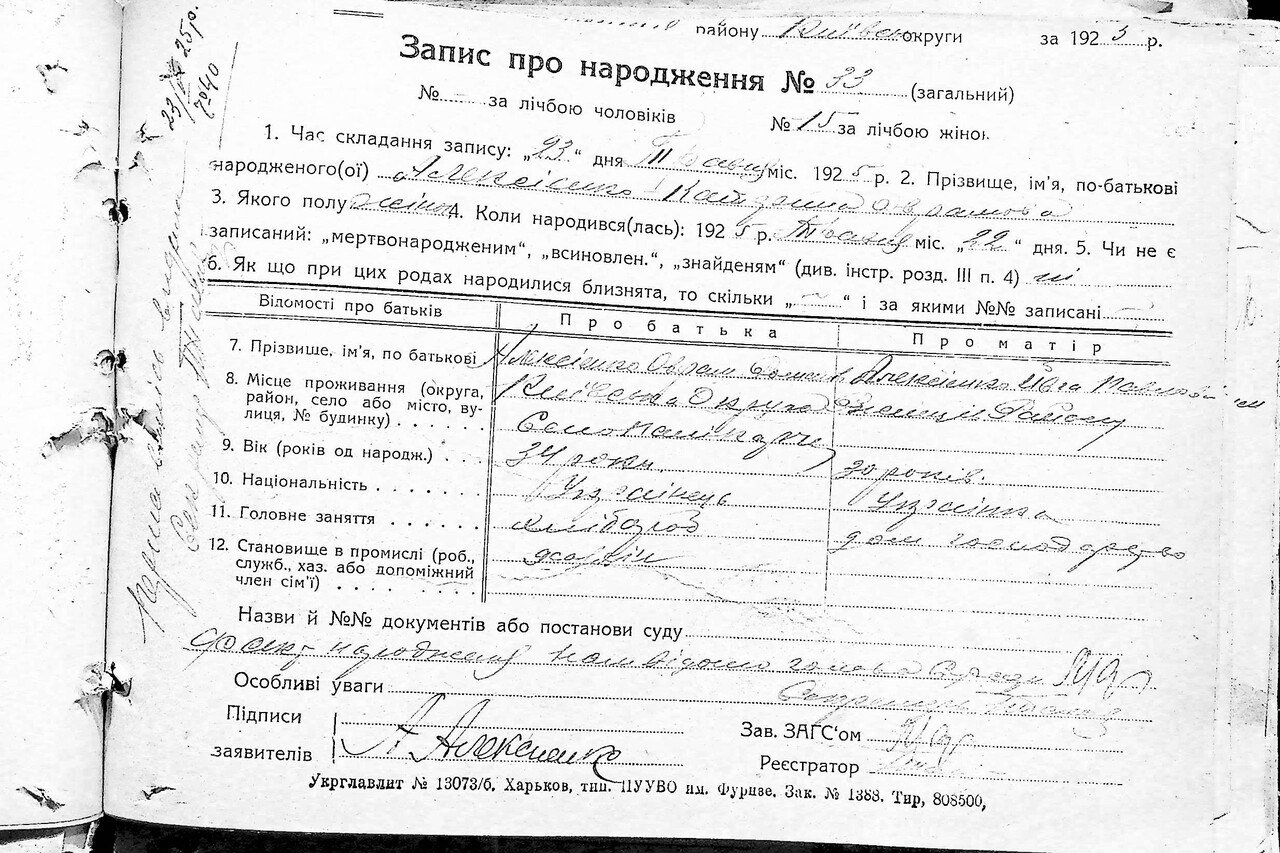 району Київськ округи за 1925 р.
Запис про народження № 33 (загальний)
№ — за лічбою чоловіків № 15 за лічбою жінок
1. Час складання запису: „23“ дня Травня міс. 1925 р. 2. Прізвище, ім'я, по-батькові
народженого(ої) Алексієнко Катерина Аврамовна
3. Якого полу жіноч 4. Коли народився(лась): 1925 р. Травня міс. „22“ дня. 5. Чи не є
записаний: „мертвонародженим“, „всиновлен.“, „знайденям“ (див. інстр. розд. III п. 4) ні
6. Як що при цих родах народилися близнята, то скільки „—“ і за якими №№ записані —
Відомості про батьків Про батька Про матір
7. Прізвище, ім'я, по батькові Алексієнко Оврам Алексієнко
8. Місце проживання (округа, район, село або місто, вулиця, № будинку) Київська Округа Району
Село
9. Вік (років од народж.) 34 роки 30 років.
10. Національність Українець Українка
11. Головне заняття хлібороб дом господарство
12. Становище в промислі (роб., служб., хаз. або допоміжний член сім'ї)
Назви й №№ документів або постанови суду
факт народження нам відомо голова с/ради
Особливі уваги Секретарь
Підписи
заявителів А Алексиенко
Зав. ЗАГС'ом
Реєстратор
Укрглавлит № 13073/б. Харьков, тип. ПУУВО им. Фрунзе. Зак. № 1388. Тир, 808500,
23/ 25 р.
№ 40